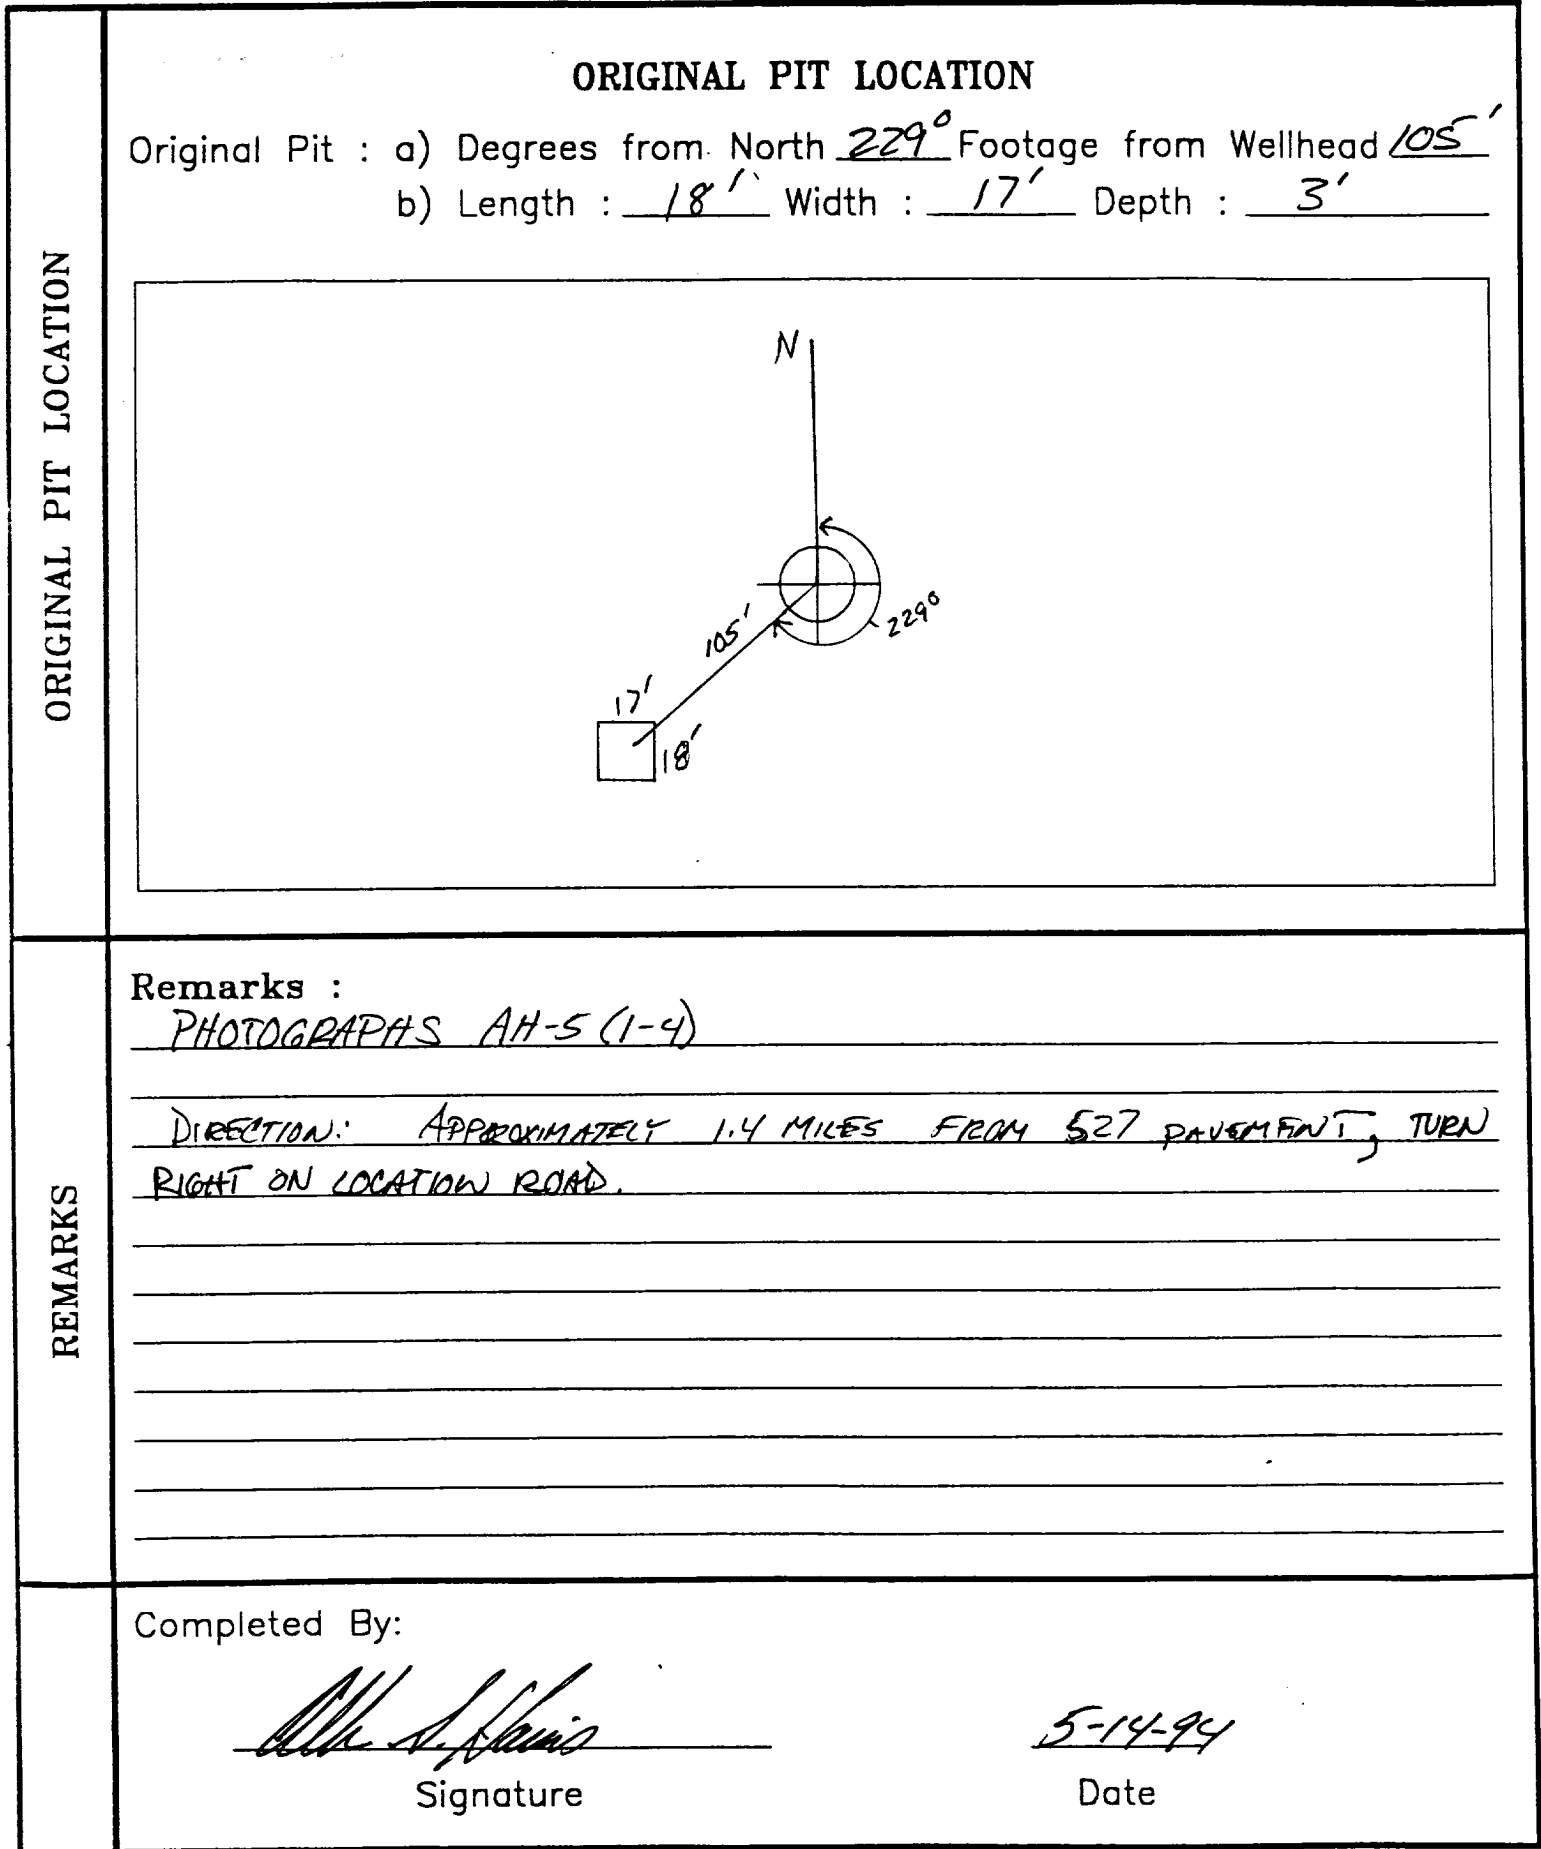 ORIGINAL PIT LOCATION
ORIGINAL PIT LOCATION
Original Pit : a) Degrees from North 229° Footage from Wellhead 105'
b) Length : 18' Width : 17' Depth : 3'
N
229°
105'
17'
18'
REMARKS
Remarks :
PHOTOGRAPHS AH-5 (1-4)
DIRECTION: APPROXIMATELY 1.4 MILES FROM 527 PAVEMENT, TURN
RIGHT ON LOCATION ROAD.
Completed By:
5-14-94
Signature
Date